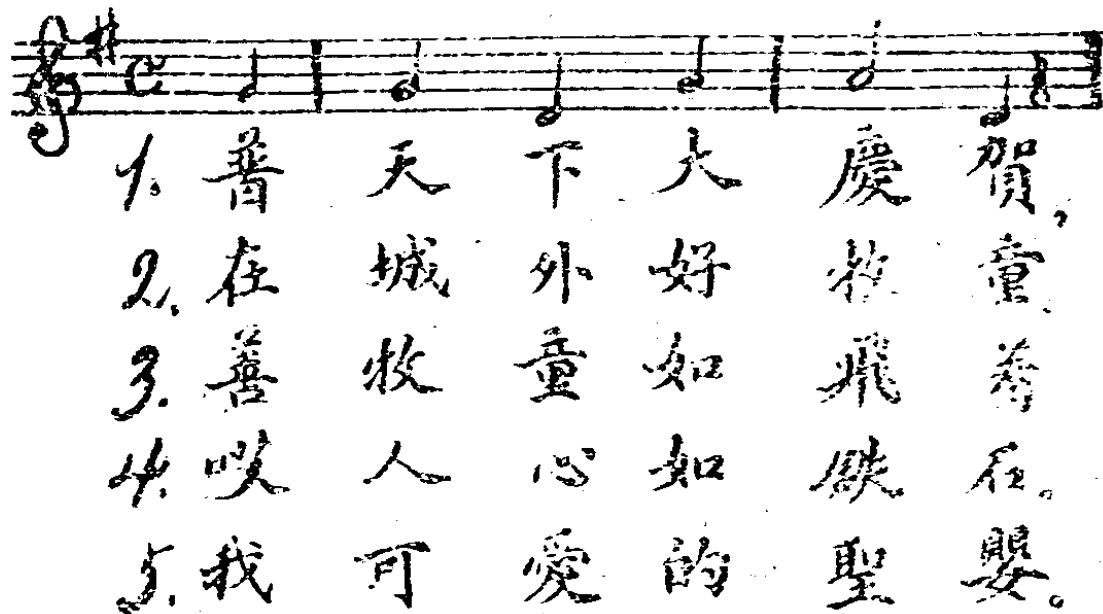 1. 普天下大慶賀,
2. 在城外好牧童.
3. 善牧童如飛奔
4. 嘆人心如鉄石。
5. 我可愛的聖嬰。